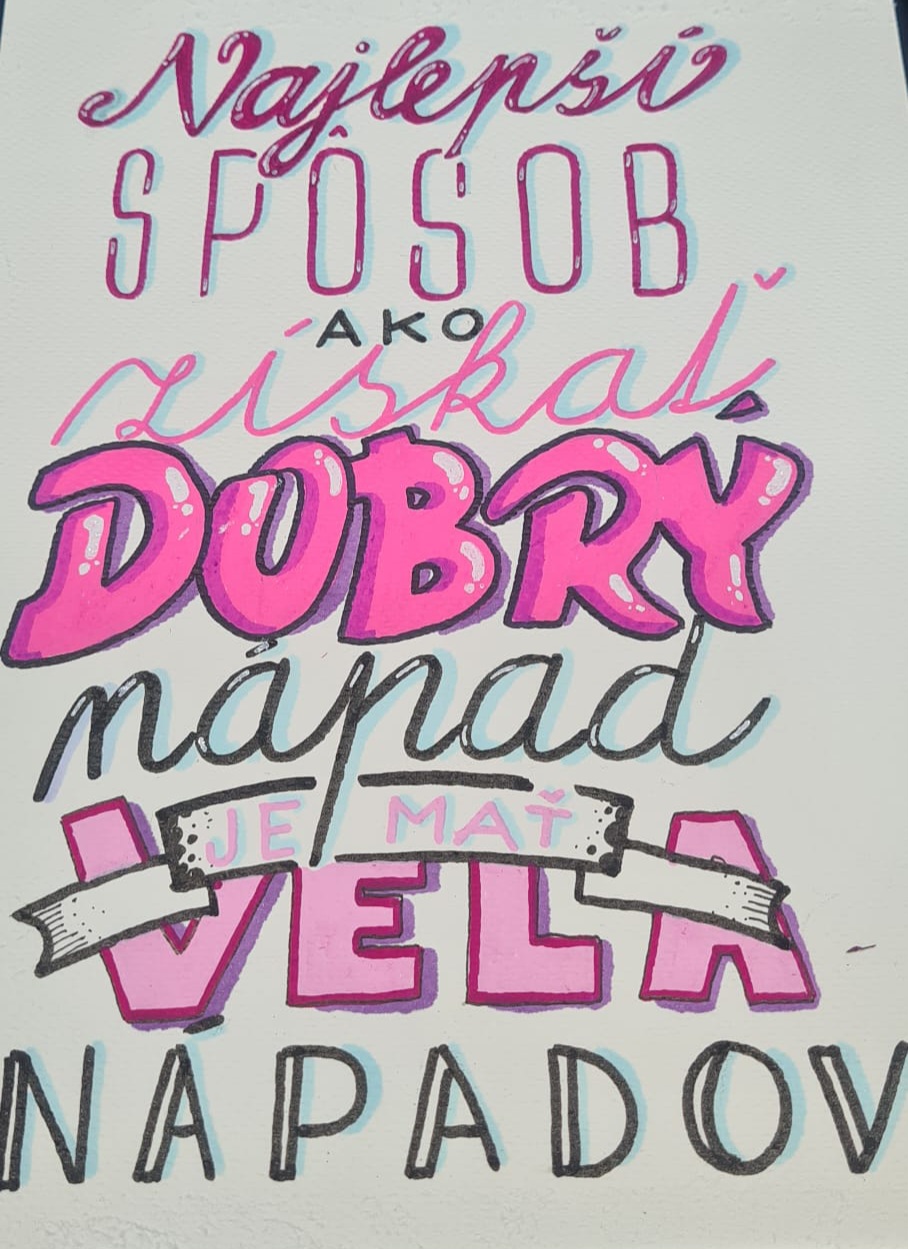 Najlepší
SPÔSOB
AKO
získať
DOBRÝ
nápad
JE MAŤ
VELA
NÁPADOV